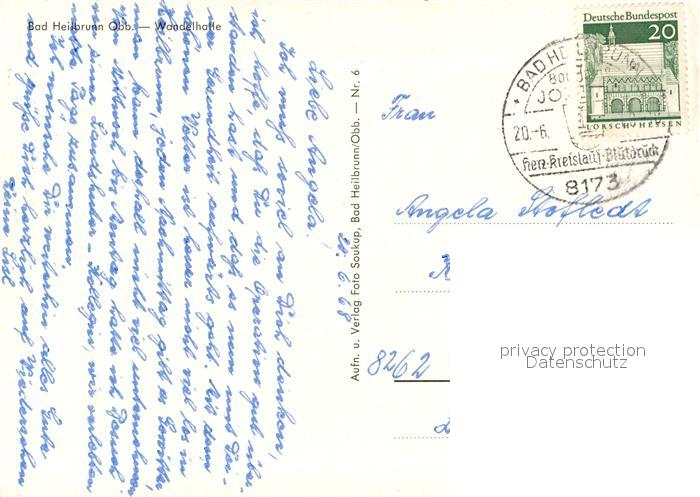 Bad Heilbrunn Obb. — Wandelhalle
20. 6. 68
Liebe Angela!
Ich muß soviel an Dich denken,
ich hoffe daß Du die Operation gut über-
standen hast und daß es nun mit Dei-
ner Gesundheit aufwärts geht. Mit dem
schönen Wetter ist heuer nicht viel los in
Heilbrunn, jeden Nachmittag gibt es Gewitter
man kann deshalb nicht viel unternehmen.
Von Mittwoch bis Sonntag hatte ich Besuch
einer Kollegin, wir verlebten
Tage zusammen.
Ich wünsche Dir weiterhin alles Gute
und grüße Dich herzlich auf Wiedersehen
Deine
Aufn. u. Verlag Foto Soukup, Bad Heilbrunn/Obb. — Nr. 6
Deutsche Bundespost
20
LORSCH/HESSEN
BAD HEILBRUNN
20.-6.
Herz-Kreislauf-Blutdruck
8173
Frau
Angela
8262
privacy protection
Datenschutz